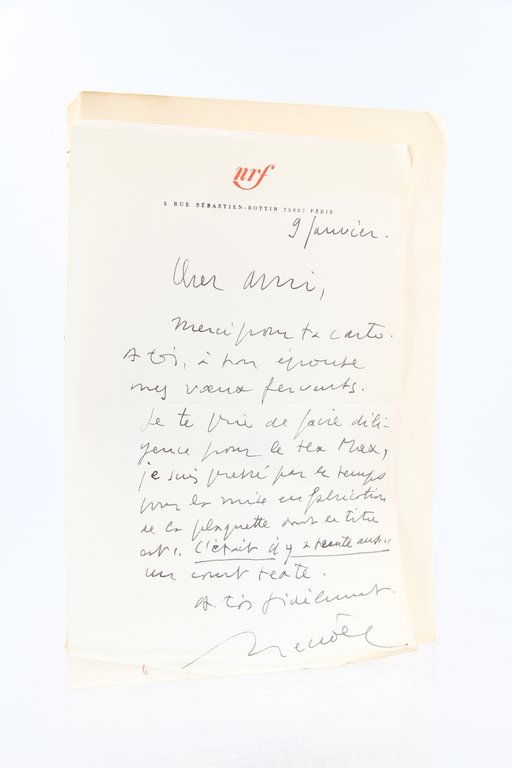 nrf
5 RUE SÉBASTIEN-BOTTIN 75007 PARIS
9 Janvier.
Cher ami,
Merci pour ta carte.
A toi, à ton épouse
mes vœux fervents.
Je te prie de faire dili-
gence pour le tex Max,
je suis pressé par le temps
pour la mise en fabrication
de la plaquette dont le titre
est "c'était il y a trente ans"
un court texte.
A toi fidèlement.
6